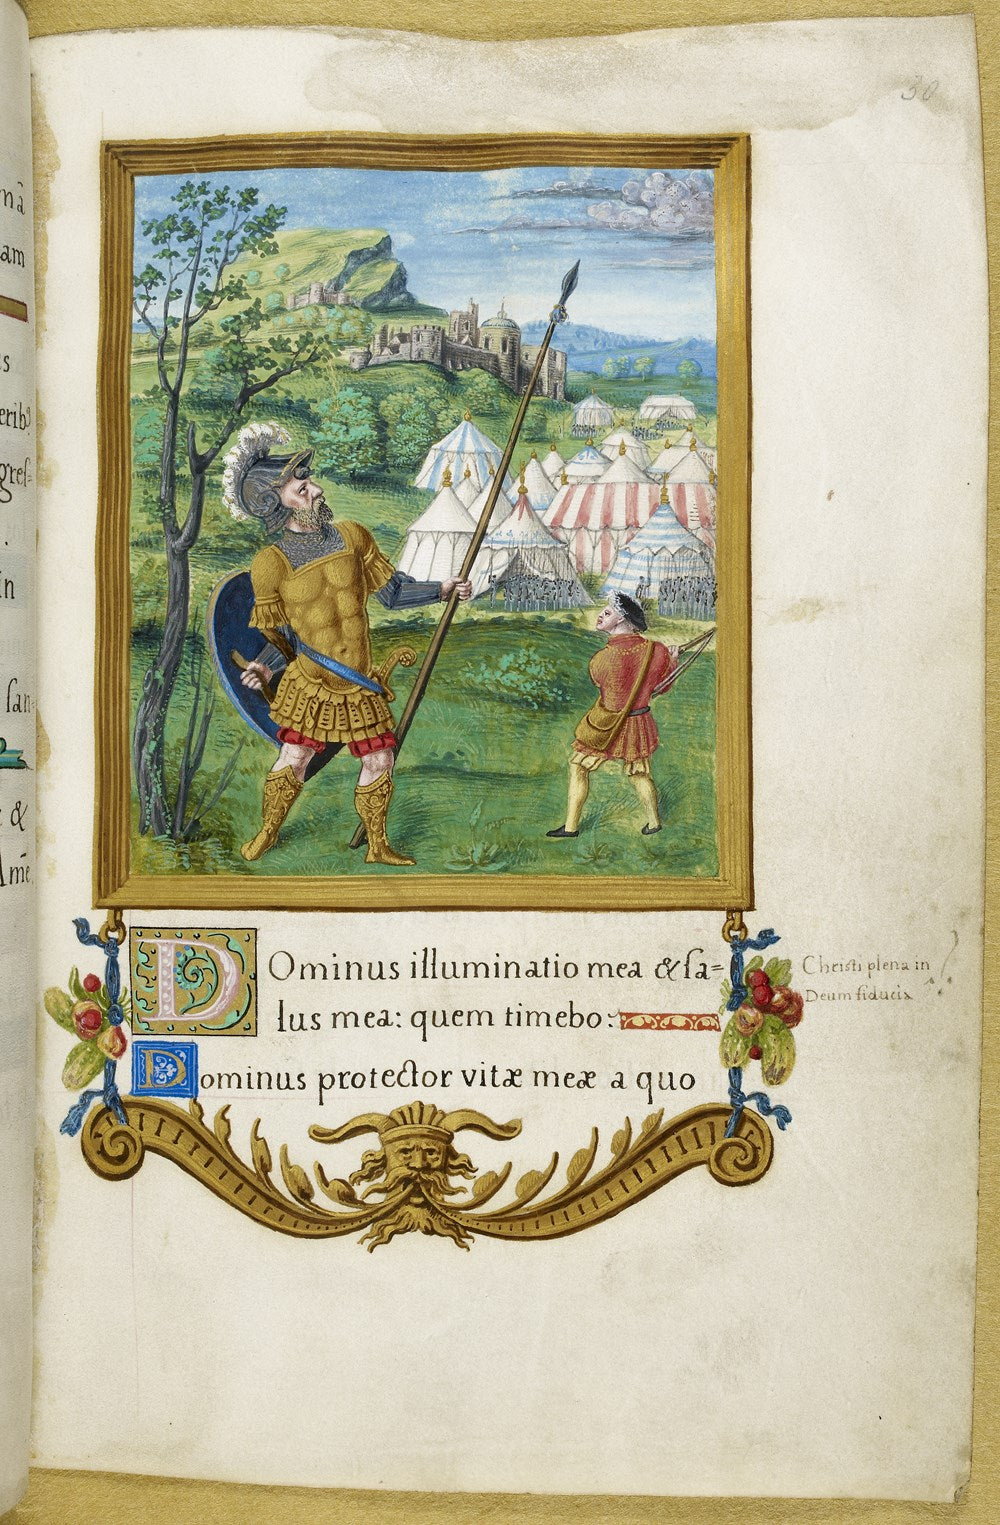 30
nā
am
s
erib9
gres=
.
in
san=
&
Amē
DOminus illuminatio mea & sa=
lus mea: quem timebo:
Dominus protector vitæ meæ a quo
Christi plena in
Deum fiducia